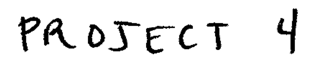 PROJECT 4